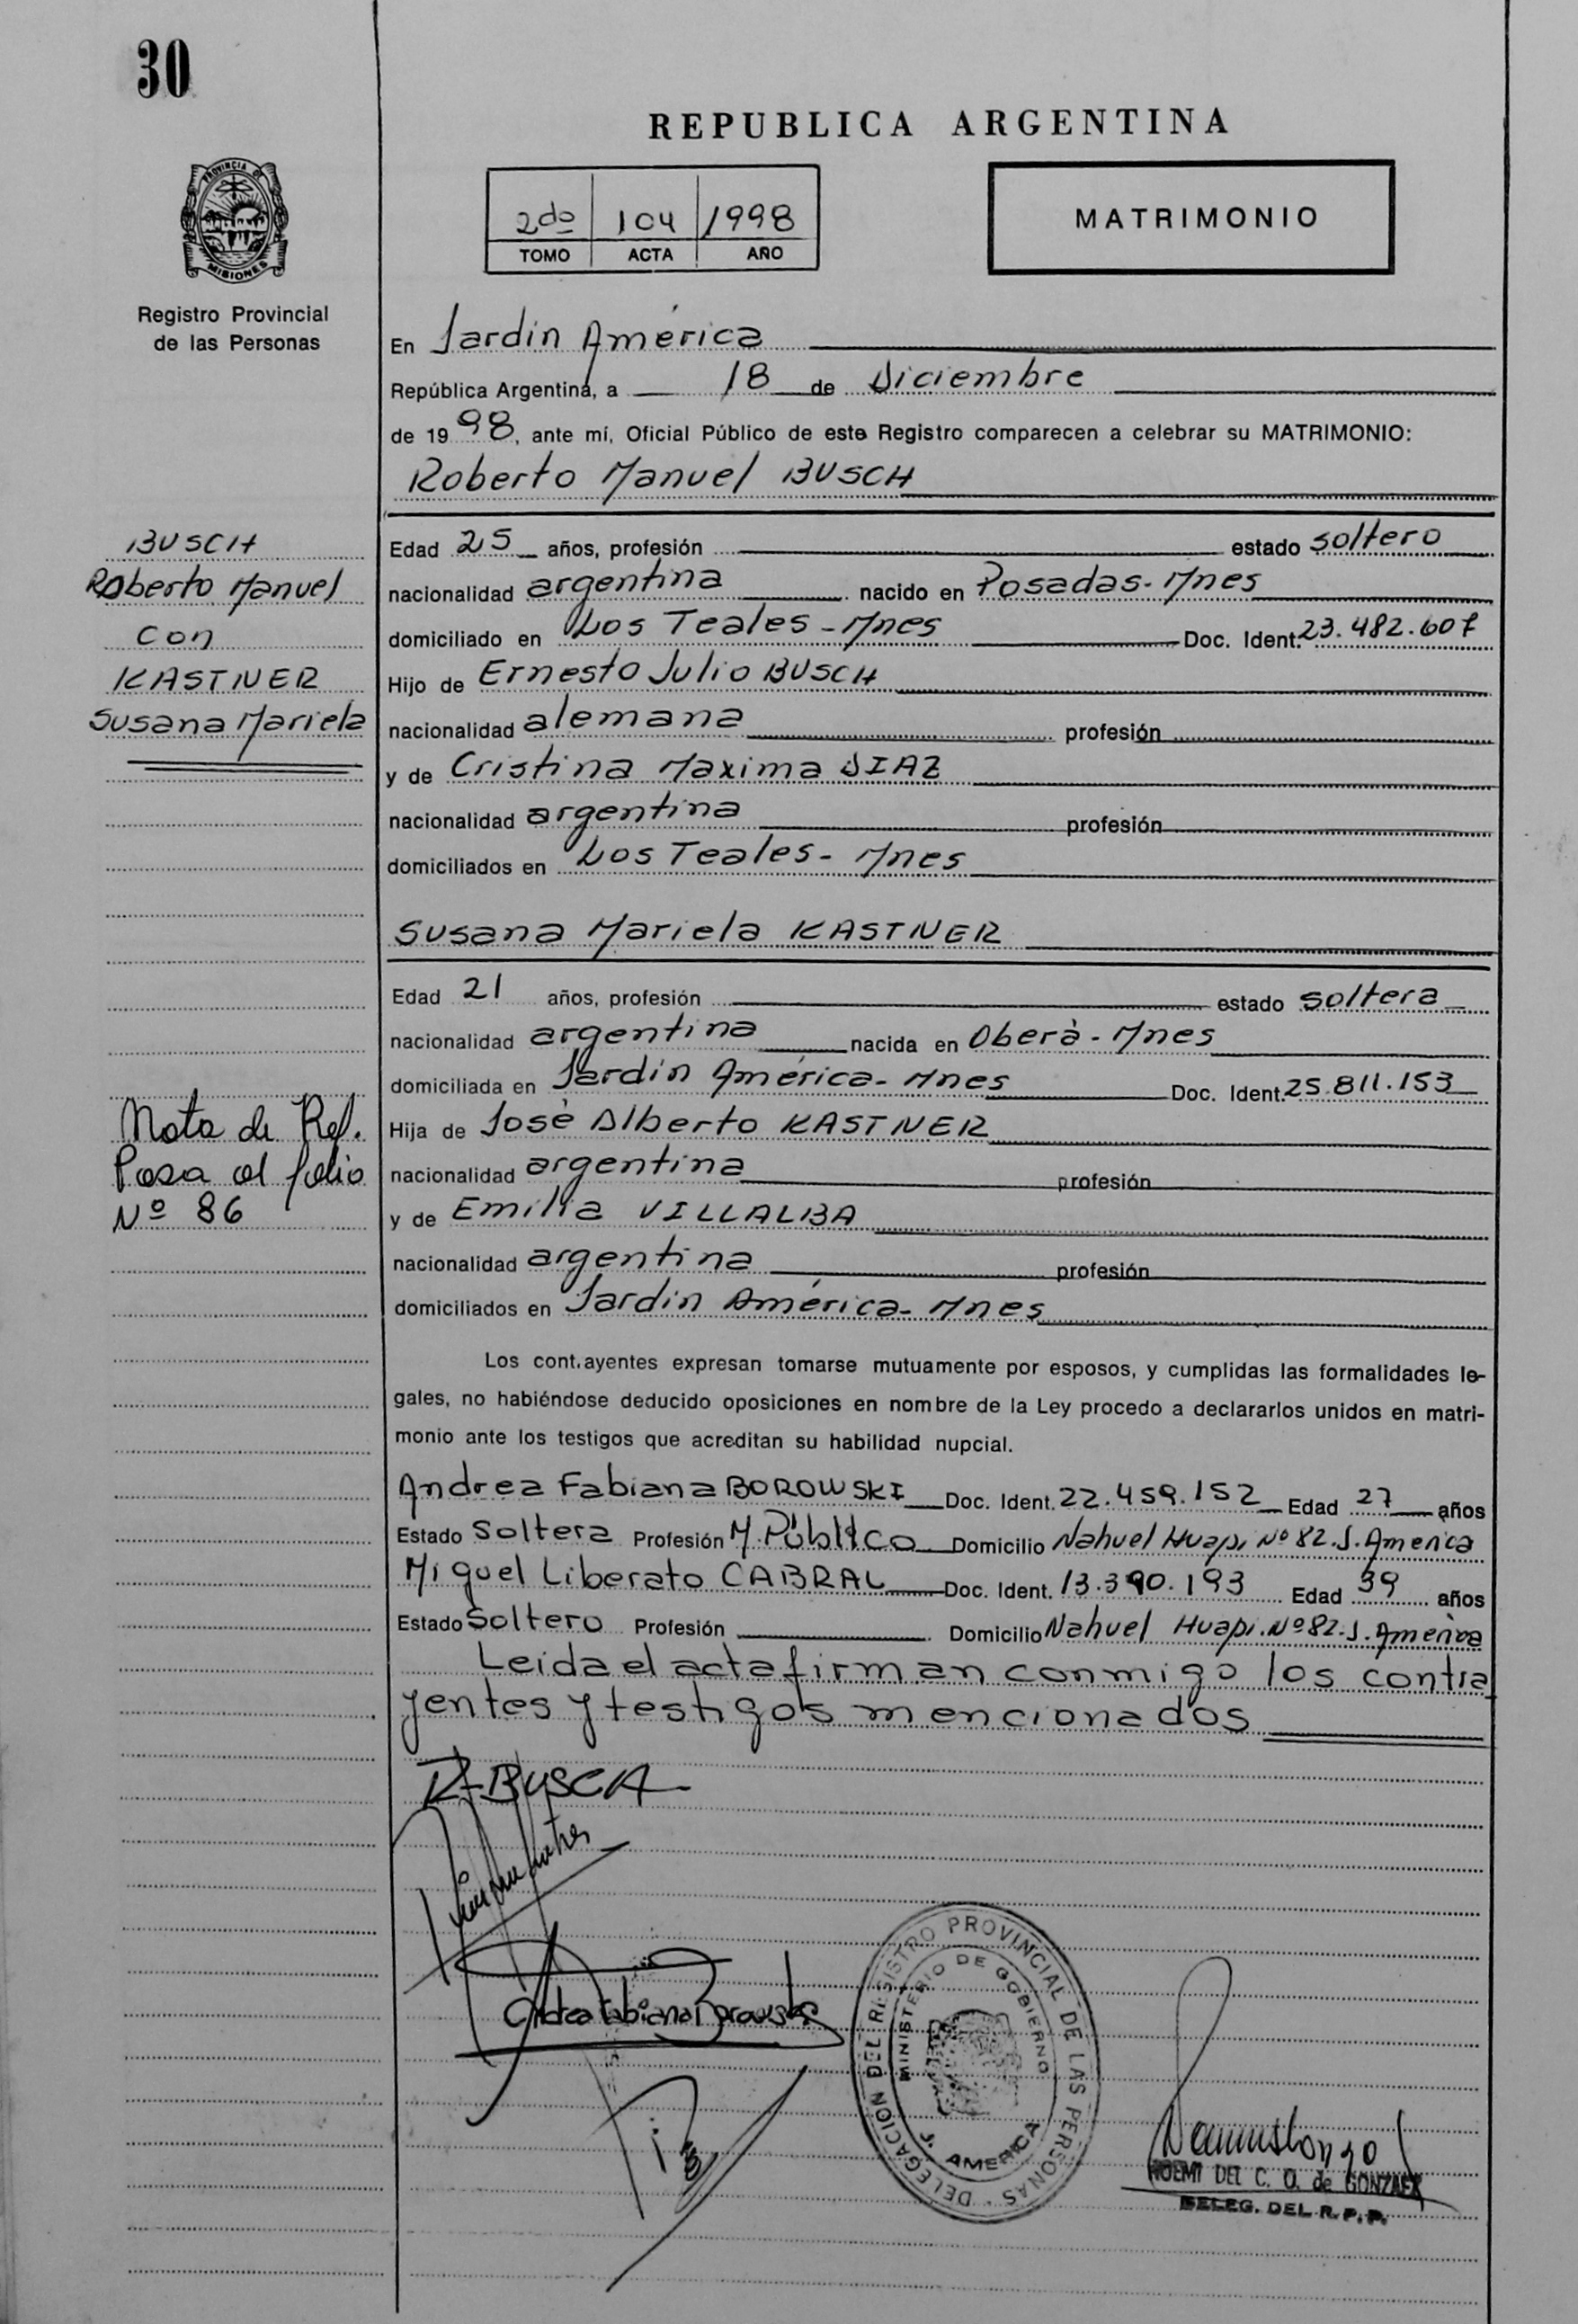 30
REPUBLICA ARGENTINA
PROVINCIA DE
MISIONES
Registro Provincial
de las Personas
2do 104 1998
TOMO ACTA AÑO
MATRIMONIO
En Jardín América
República Argentina, a 18 de Diciembre
de 1998, ante mí, Oficial Público de este Registro comparecen a celebrar su MATRIMONIO:
Roberto Manuel BUSCH
BUSCH
Roberto Manuel
con
KASTNER
Susana Mariela
Edad 25 años, profesión estado soltero
nacionalidad argentina nacido en Posadas-Mnes
domiciliado en Los Teales-Mnes Doc. Ident. 23.482.607
Hijo de Ernesto Julio BUSCH
nacionalidad alemana profesión
y de Cristina Maxima DIAZ
nacionalidad argentina profesión
domiciliados en Los Teales- Mnes
Susana Mariela KASTNER
Edad 21 años, profesión estado soltera
nacionalidad argentina nacida en Oberà-Mnes
domiciliada en Jardín América-Mnes Doc. Ident. 25.811.153
Hija de José Alberto KASTNER
nacionalidad argentina profesión
y de Emilia VILLALBA
nacionalidad argentina profesión
domiciliados en Jardín América-Mnes
Nota de Ref.
Pasa al folio
Nº 86
Los cont.ayentes expresan tomarse mutuamente por esposos, y cumplidas las formalidades le-
gales, no habiéndose deducido oposiciones en nombre de la Ley procedo a declararlos unidos en matri-
monio ante los testigos que acreditan su habilidad nupcial.
Andrea Fabiana BOROWSKI Doc. Ident. 22.459.152 Edad 27 años
Estado Soltera Profesión M. Público Domicilio Nahuel Huapi Nº 82. J. America
Miguel Liberato CABRAL Doc. Ident. 13.390.193 Edad 39 años
Estado Soltero Profesión Domicilio Nahuel Huapi. Nº 82. J. América
Leída el acta firman conmigo los contra
yentes y testigos mencionados
R. BUSCH
Andrea Fabiana Borowski
DELEGACION DEL REGISTRO PROVINCIAL DE LAS PERSONAS
MINISTERIO DE GOBIERNO
J. AMERICA
NOEMI DEL C. O. de GONZALEZ
DELEG. DEL R.P.P.